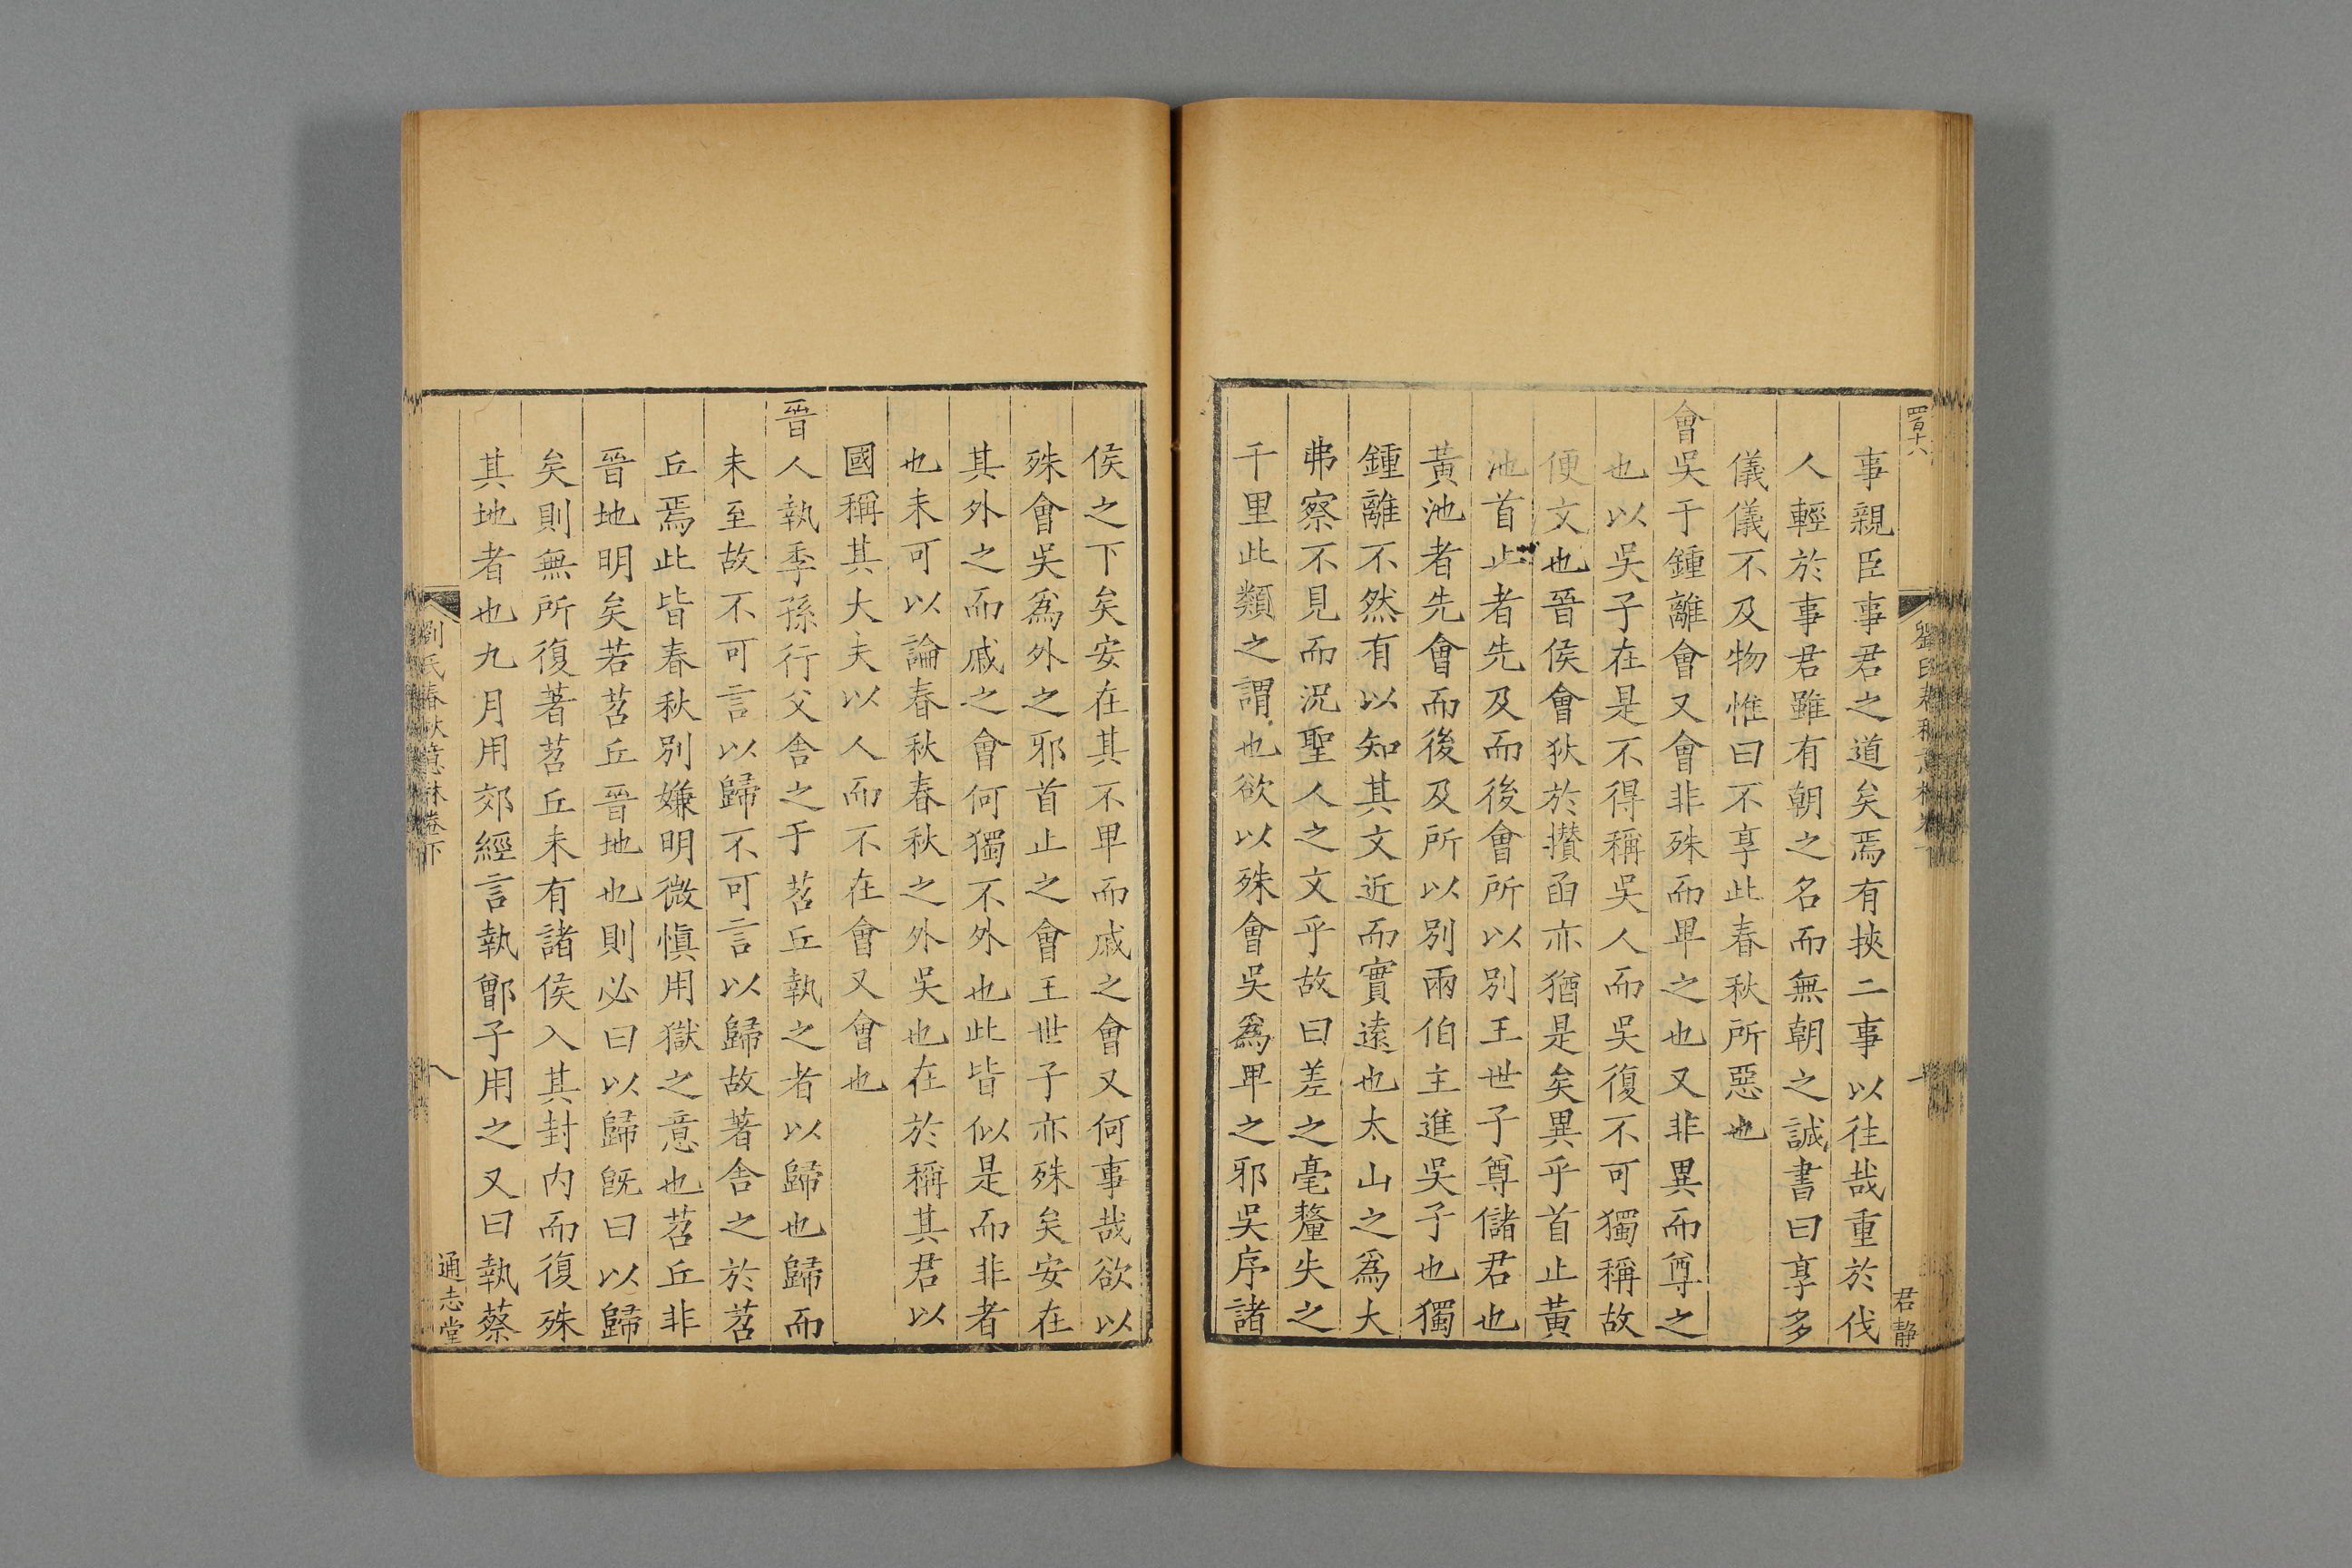 事親臣事君之道矣焉有挾二事以往哉重於伐
人輕於事君雖有朝之名而無朝之誠書曰享多
儀儀不及物惟曰不享此春秋所惡也
會吳于鍾離會又會非殊而卑之也又非異而尊之
也以吳子在是不得稱吳人而吳復不可獨稱故
便文也晉侯會狄於攢函亦猶是矣異乎首止黃
池首止者先及而後會所以別王世子尊儲君也
黃池者先會而後及所以別兩伯主進吳子也獨
鍾離不然有以知其文近而實遠也太山之爲大
弗察不見而況聖人之文乎故曰差之毫釐失之
千里此類之謂也欲以殊會吳爲卑之邪吳序諸
君静
侯之下矣安在其不卑而戚之會又何事哉欲以
殊會吳爲外之邪首止之會王世子亦殊矣安在
其外之而戚之會何獨不外也此皆似是而非者
也未可以論春秋春秋之外吳也在於稱其君以
國稱其大夫以人而不在會又會也
晉人執季孫行父舍之于苕丘執之者以歸也歸而
未至故不可言以歸不可言以歸故著舍之於苕
丘焉此皆春秋別嫌明微慎用獄之意也苕丘非
晉地明矣若苕丘晉地也則必曰以歸旣曰以歸
矣則無所復著苕丘未有諸侯入其封内而復殊
其地者也九月用郊經言執鄫子用之又曰執蔡
劉氏春秋意林卷下
八
通志堂